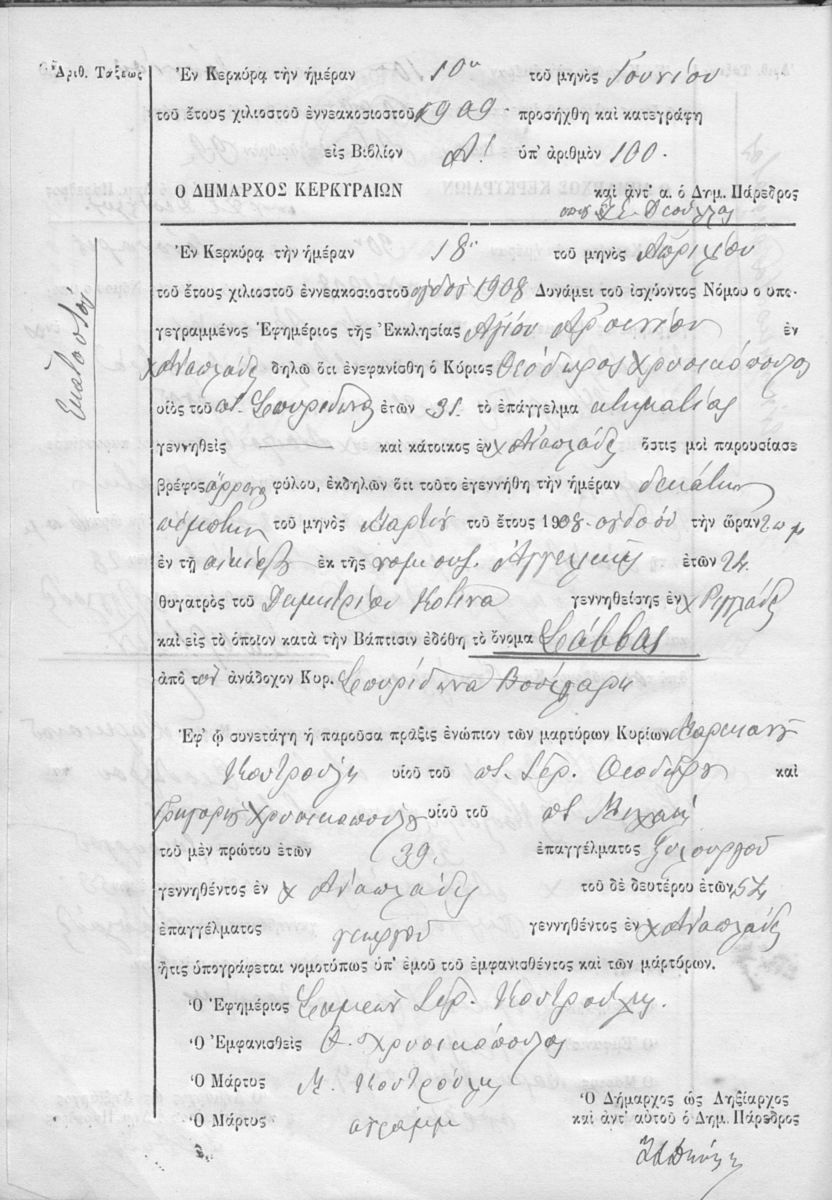 Ἀριθ. Τάξεως
Ἑκατοστόν
Ἐν Κερκύρᾳ τὴν ἡμέραν 10ην τοῦ μηνὸς Ἰουνίου
τοῦ ἔτους χιλιοστοῦ ἐννεακοσιοστοῦ 1909 προσήχθη καὶ κατεγράφη
εἰς Βιβλίον Α! ὑπ' ἀριθμὸν 100.
Ο ΔΗΜΑΡΧΟΣ ΚΕΡΚΥΡΑΙΩΝ καὶ ἀντ' α. ὁ Δημ. Πάρεδρος
Ἐν Κερκύρᾳ τὴν ἡμέραν 18ην τοῦ μηνὸς Ἀπριλίου
τοῦ ἔτους χιλιοστοῦ ἐννεακοσιοστοῦ ὀγδόου 1908 Δυνάμει τοῦ ἰσχύοντος Νόμου ὁ υπο-
γεγραμμένος Ἐφημέριος τῆς Ἐκκλησίας Ἁγίου Ἀρσενίου ἐν
χ Ἀναπλάδες δηλῶ ὅτι ἐνεφανίσθη ὁ Κύριος Θεόδωρος Χρυσικόπουλος
υἱὸς τοῦ ποτ. Σπυρίδωνος ἐτῶν 31. τὸ ἐπάγγελμα κτηματίας
γεννηθεὶς καὶ κάτοικος ἐν χ Ἀναπλάδες ὅστις μοὶ παρουσίασε
βρέφος ἄρρενος φύλου, ἐκδηλῶν ὅτι τοῦτο ἐγεννήθη τὴν ἡμέραν δεκάτην
πέμπτην τοῦ μηνὸς Μαρτίου τοῦ ἔτους 1908 ὀγδόου τὴν ὥραν 2 π μ
ἐν τῇ οἰκίᾳ ἐκ τῆς νομ. συζ. Ἀγγελικῆς ἐτῶν 24.
θυγατρὸς τοῦ Δημητρίου Κοτινᾶ γεννηθείσης ἐν χ Ῥιγγλάδες
καὶ εἰς τὸ ὁποῖον κατὰ τὴν Βάπτισιν ἐδόθη τὸ ὄνομα Σάββας
ἀπὸ τὸν ἀνάδοχον Κυρ. Σπυρίδωνα Βούλγαρη
Ἐφ' ᾧ συνετάγη ἡ παροῦσα πρᾶξις ἐνώπιον τῶν μαρτύρων Κυρίων
Κουτρούλη υἱοῦ τοῦ ποτ. ἱερ. Θεοδώρου καὶ
Γρηγορίου Χρυσικοπούλου υἱοῦ τοῦ ποτ Μιχαήλ
τοῦ μὲν πρώτου ἐτῶν 39. ἐπαγγέλματος ξυλουργοῦ
γεννηθέντος ἐν χ Ἀναπλάδες τοῦ δὲ δευτέρου ἐτῶν 54
ἐπαγγέλματος γεωργοῦ γεννηθέντος ἐν χ Ἀναπλάδες
ἥτις ὑπογράφεται νομοτύπως ὑπ' ἐμοῦ τοῦ ἐμφανισθέντος καὶ τῶν μαρτύρων.
Ὁ Ἐφημέριος Συμεὼν ἱερ. Κουτρούλης.
Ὁ Ἐμφανισθεὶς Θ. Χρυσικόπουλος
Ὁ Μάρτυς Μ. Κουτρούλης
Ὁ Μάρτυς ἀγράμμ
Ὁ Δήμαρχος ὡς Ληξίαρχος
καὶ ἀντ' αὐτοῦ ὁ Δημ. Πάρεδρος